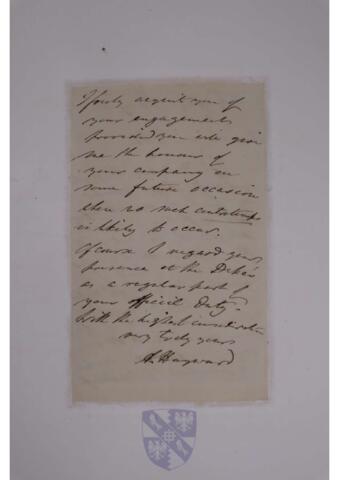 I freely acquit you of
your engagements
provided you will give
me the honour of
your company on
some future occasion
when no such contretemps
is likely to occur.
Of course I regard your
presence at the Duke's
as a regular part of
your official duty.
With the highest consideration
very truly yours
A. Hayward